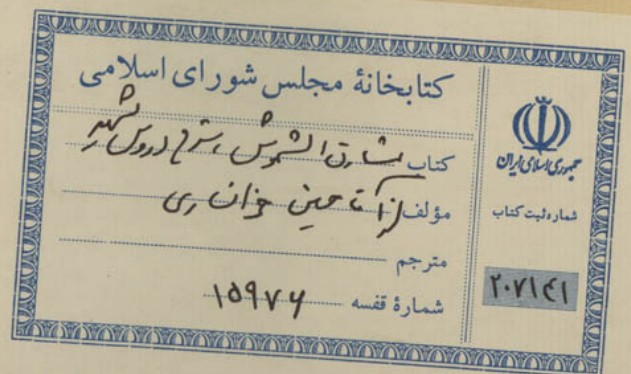 کتابخانهٔ مجلس شورای اسلامی
کتاب مشارق الشموس، شرح دروس شهید
مؤلف از آقا حسین خوانساری
مترجم
شمارهٔ قفسه ۱۵۹۷۶
جمهوری اسلامی ایران
شماره ثبت کتاب
۲۰۷۱۴۱